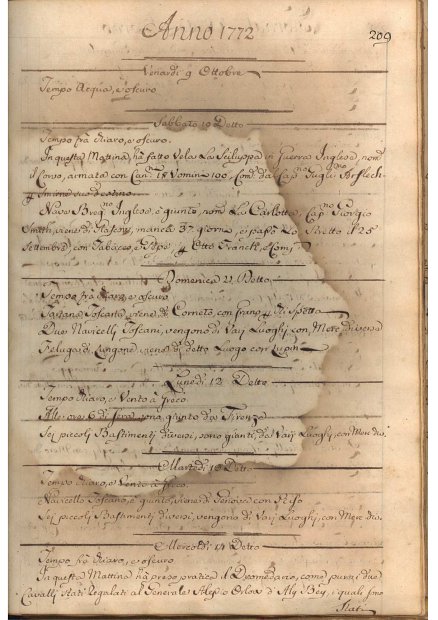 Anno 1772
209
Venardi 9 Ottobre
Tempo Acqua, e oscuro
Sabbato 10 Detto
Tempo frà chiaro, e oscuro.
In questa Mattina, hà fatto Vela La Sciluppa in Guerra Inglese, nom
il Corso, armata con Can. 18 Vomini 100, Com. da Cap.no
suo Destino
Nave Breg.no Inglese è giunto, nom. La Carlotta, Cap.no Giorgio
Smith, viene di manca 37 giorni, e passò Lo Stretto il 25
Settembre, con Tabacco, e
Domenica Detto
Tempo frà chiaro, e oscuro
Tartana Toscana, viene di con
Due Navicelli Toscani, vengono di Varj Luoghi con Merc diverse
viene di detto Luogo con Lupin
Lunedi 12 Detto
Tempo chiaro, e Vento à Greco
Alle ore 6 di Sera, sono giunto da Firenze
Sei piccoli Bastimenti diversi, sono giunti, da Varj Luoghi, con Merc div.
Martedi 13 Detto
Tempo chiaro, e Vento à Greco.
Navicello Toscano, è giunto, viene di Genova con Riso
Sei piccoli Bastimenti diversi, vengono di Varj Luoghi, con Merc div.
Mercoldi 14 Detto
Tempo frà chiaro, e oscuro
In questa Mattina hà preso pratica il Dromedario, come pure i due
Cavalli Stati Regalati al Generale Alessio Orlow di Aly Bey, i quali sono
Stati